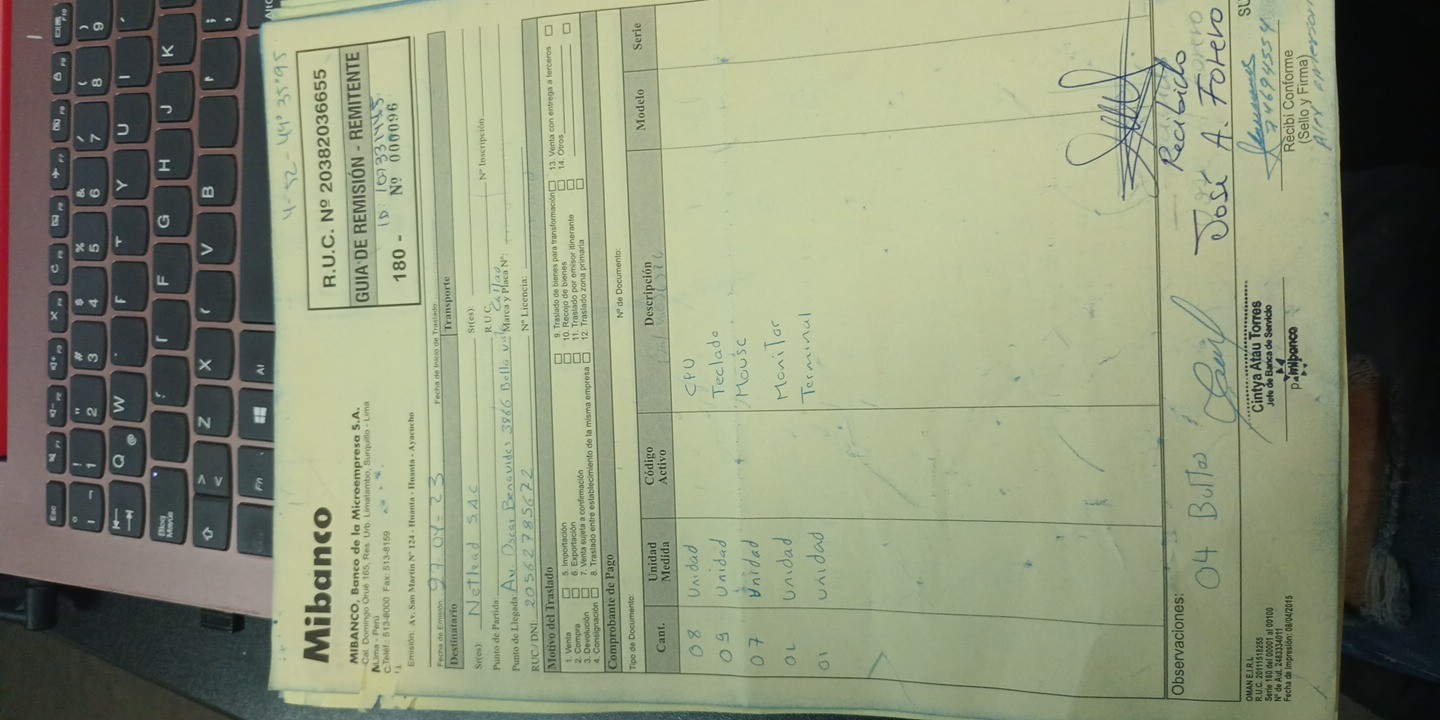 4-52-49° 35°95
Mibanco
MIBANCO, Banco de la Microempresa S.A.
Cal. Domingo Orué 165, Res. Urb. Limatambo, Surquillo - Lima
Lima - Perú
C.Teléf.: 513-8000 Fax: 513-8159
Emisión: Av. San Martín N° 124 - Huanta - Huanta - Ayacucho
R.U.C. Nº 20382036655
GUIA DE REMISIÓN - REMITENTE
180 - Nº 000096
Fecha de Emisión: 27-04-23
Fecha de Inicio de Traslado:
Destinatario
Transporte
Sr(es): Netlead SAC
Sr(es):
Punto de Partida
R.U.C.
Nº Inscripción
Punto de Llegada: Av Oscar Benavides 3866 Bella vista Callao
Marca y Placa Nº:
RUC / DNI 20562785672
Nº Licencia:
Motivo del Traslado
1. Venta
2. Compra
3. Devolución
4. Consignación
5. Importación
6. Exportación
7. Venta sujeta a confirmación
8. Traslado entre establecimiento de la misma empresa
9. Traslado de bienes para transformación
10. Recojo de bienes
11. Traslado por emisor itinerante
12. Traslado zona primaria
13. Venta con entrega a terceros
14. Otros
Comprobante de Pago
Tipo de Documento:
Nº de Documento:
Cant. Unidad Medida Código Activo Descripción Modelo Serie
08 Unidad CPU
09 Unidad Teclado
07 Unidad Mouse
02 Unidad Monitor
01 Unidad Terminal
Observaciones:
04 Bultos
Recibido
José A. Forero
Cintya Atau Torres
Jefe de Banca de Servicio
mibanco
74694554
Recibí Conforme
(Sello y Firma)
OMAN E.I.R.L
R.U.C. 20111518255
Serie 180 del 00001 al 00100
Nº de Aut. 2483334011
Fecha de Impresión: 08/04/2015
SU